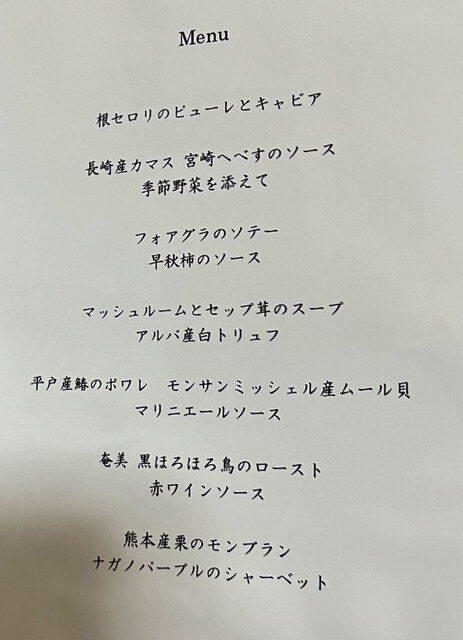 Menu
根セロリのピューレとキャビア
長崎産カマス 宮崎へべすのソース
季節野菜を添えて
フォアグラのソテー
早秋柿のソース
マッシュルームとセップ茸のスープ
アルバ産白トリュフ
平戸産鰆のポワレ　モンサンミッシェル産ムール貝
マリニエールソース
奄美 黒ほろほろ鳥のロースト
赤ワインソース
熊本産栗のモンブラン
ナガノパープルのシャーベット